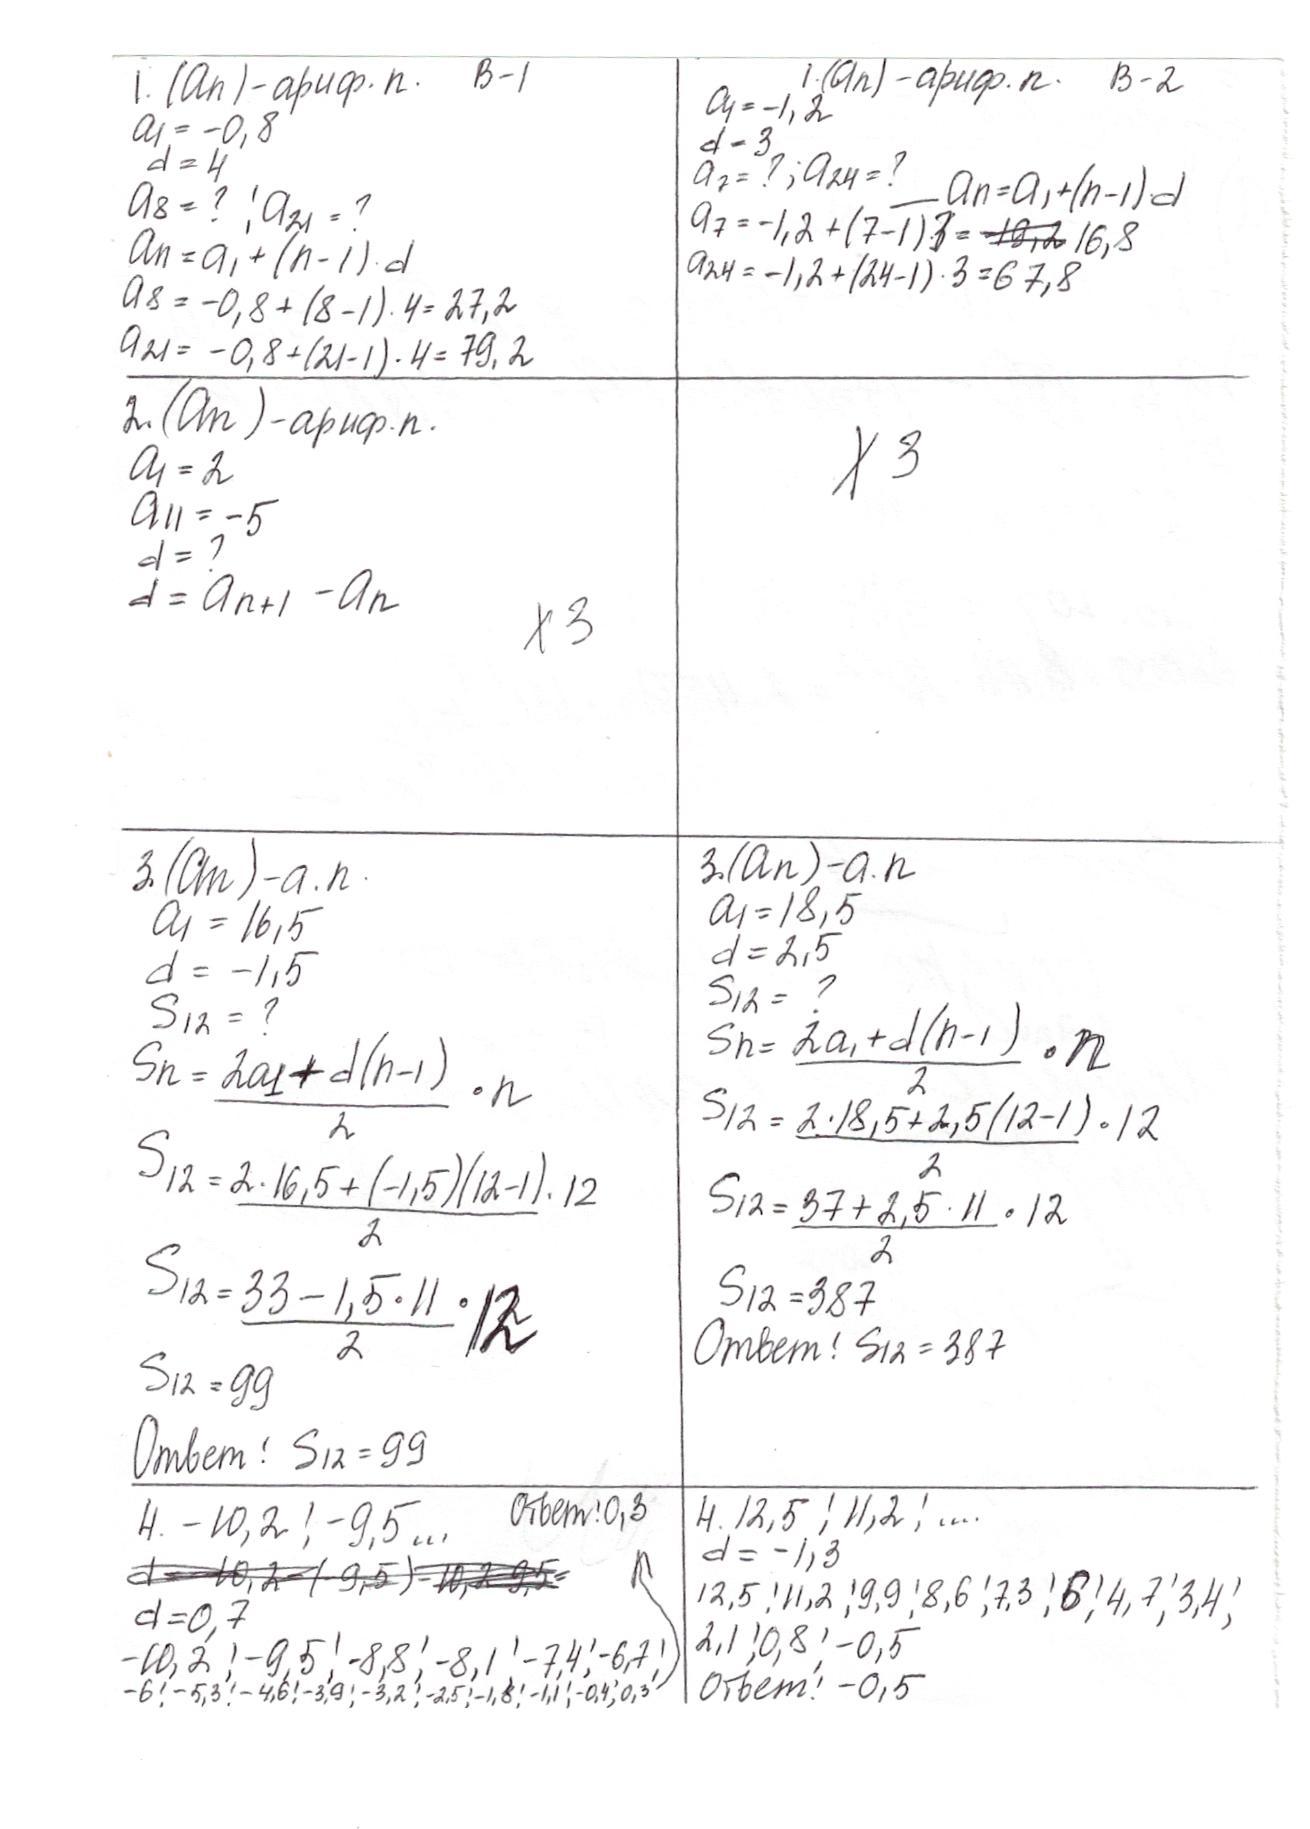 1. (an) - ариф. п. В-1
a1 = -0,8
d = 4
a8 = ? ; a21 = ?
an = a1 + (n-1)·d
a8 = -0,8 + (8-1)·4 = 27,2
a21 = -0,8 + (21-1)·4 = 79,2
1. (an) - ариф. п. В-2
a1 = -1,2
d - 3
a7 = ? ; a24 = ?
an = a1 + (n-1)·d
a7 = -1,2 + (7-1)3 = 16,8
a24 = -1,2 + (24-1)·3 = 67,8
2. (an) - ариф. п.
a1 = 2
a11 = -5
d = ?
d = an+1 - an
х 3
х 3
3. (an) - а. п.
a1 = 16,5
d = -1,5
S12 = ?
Sn = 2a1 + d(n-1) · n
2
S12 = 2·16,5 + (-1,5)(12-1) · 12
2
S12 = 33 - 1,5·11 · 12
2
S12 = 99
Ответ: S12 = 99
3. (an) - а. п
a1 = 18,5
d = 2,5
S12 = ?
Sn = 2a1 + d(n-1) · n
2
S12 = 2·18,5 + 2,5(12-1) · 12
2
S12 = 37 + 2,5·11 · 12
2
S12 = 387
Ответ: S12 = 387
4. -10,2; -9,5... Ответ: 0,3
d = -10,2 - (-9,5) - 10,2 9,5 =
d = 0,7
-10,2; -9,5; -8,8; -8,1; -7,4; -6,7;
-6; -5,3; -4,6; -3,9; -3,2; -2,5; -1,8; -1,1; -0,4; 0,3
4. 12,5; 11,2; ....
d = -1,3
12,5; 11,2; 9,9; 8,6; 7,3; 6; 4,7; 3,4;
2,1; 0,8; -0,5
Ответ: -0,5